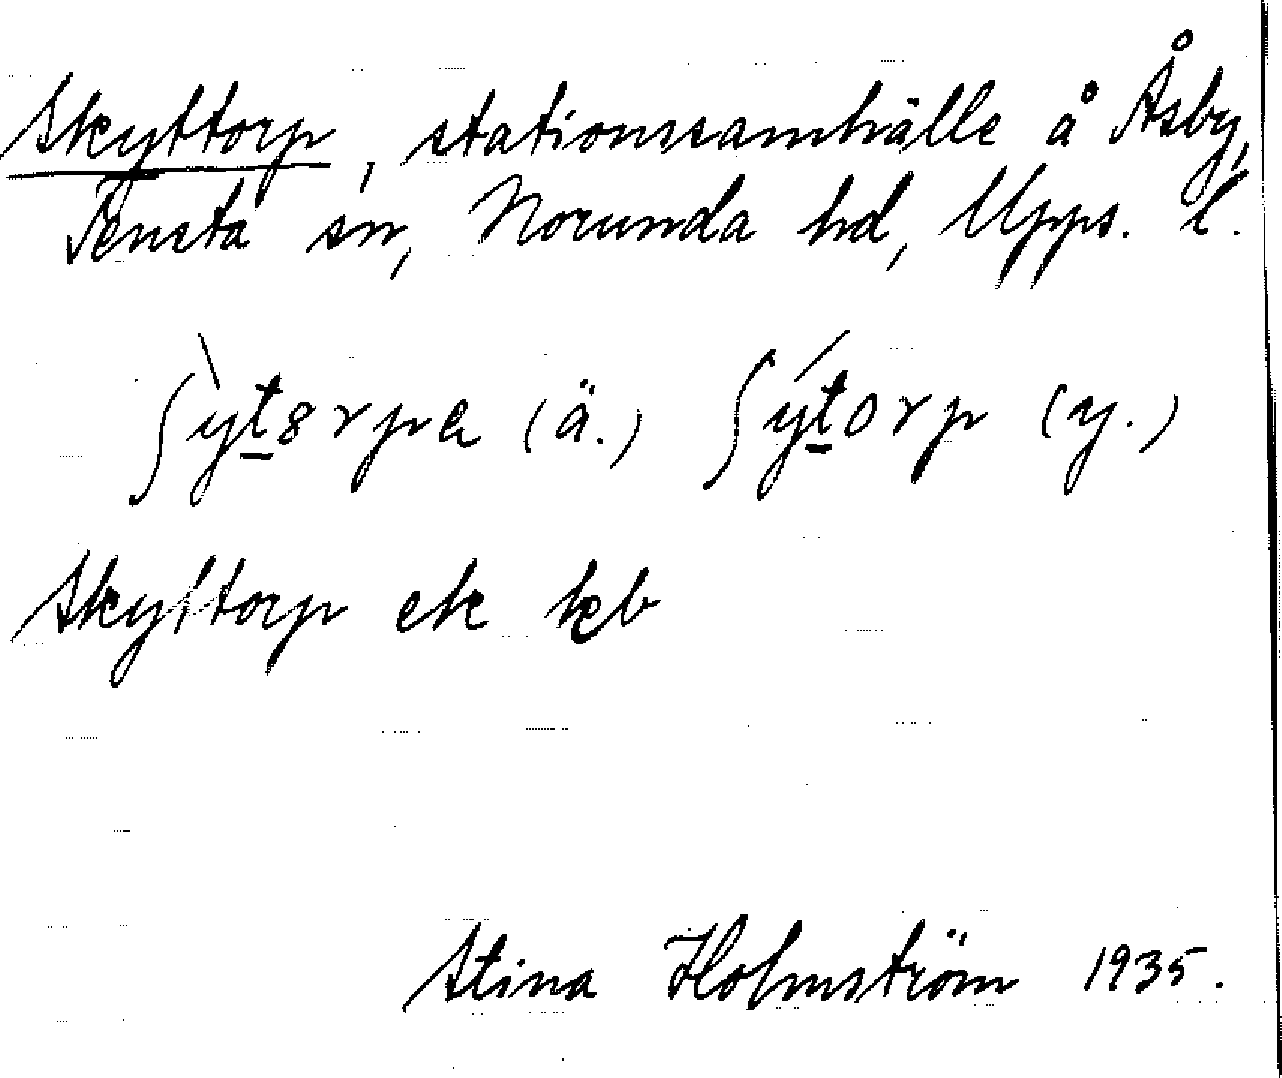 Skyttorp, stationssamhälle å Åsby,
Tensta sn, Norunda hd, Upps. l.
ʃỳt̲8rpa (ä.) ʃýt̲orp (y.)
Skyttorp ek kb
Stina Holmström 1935.